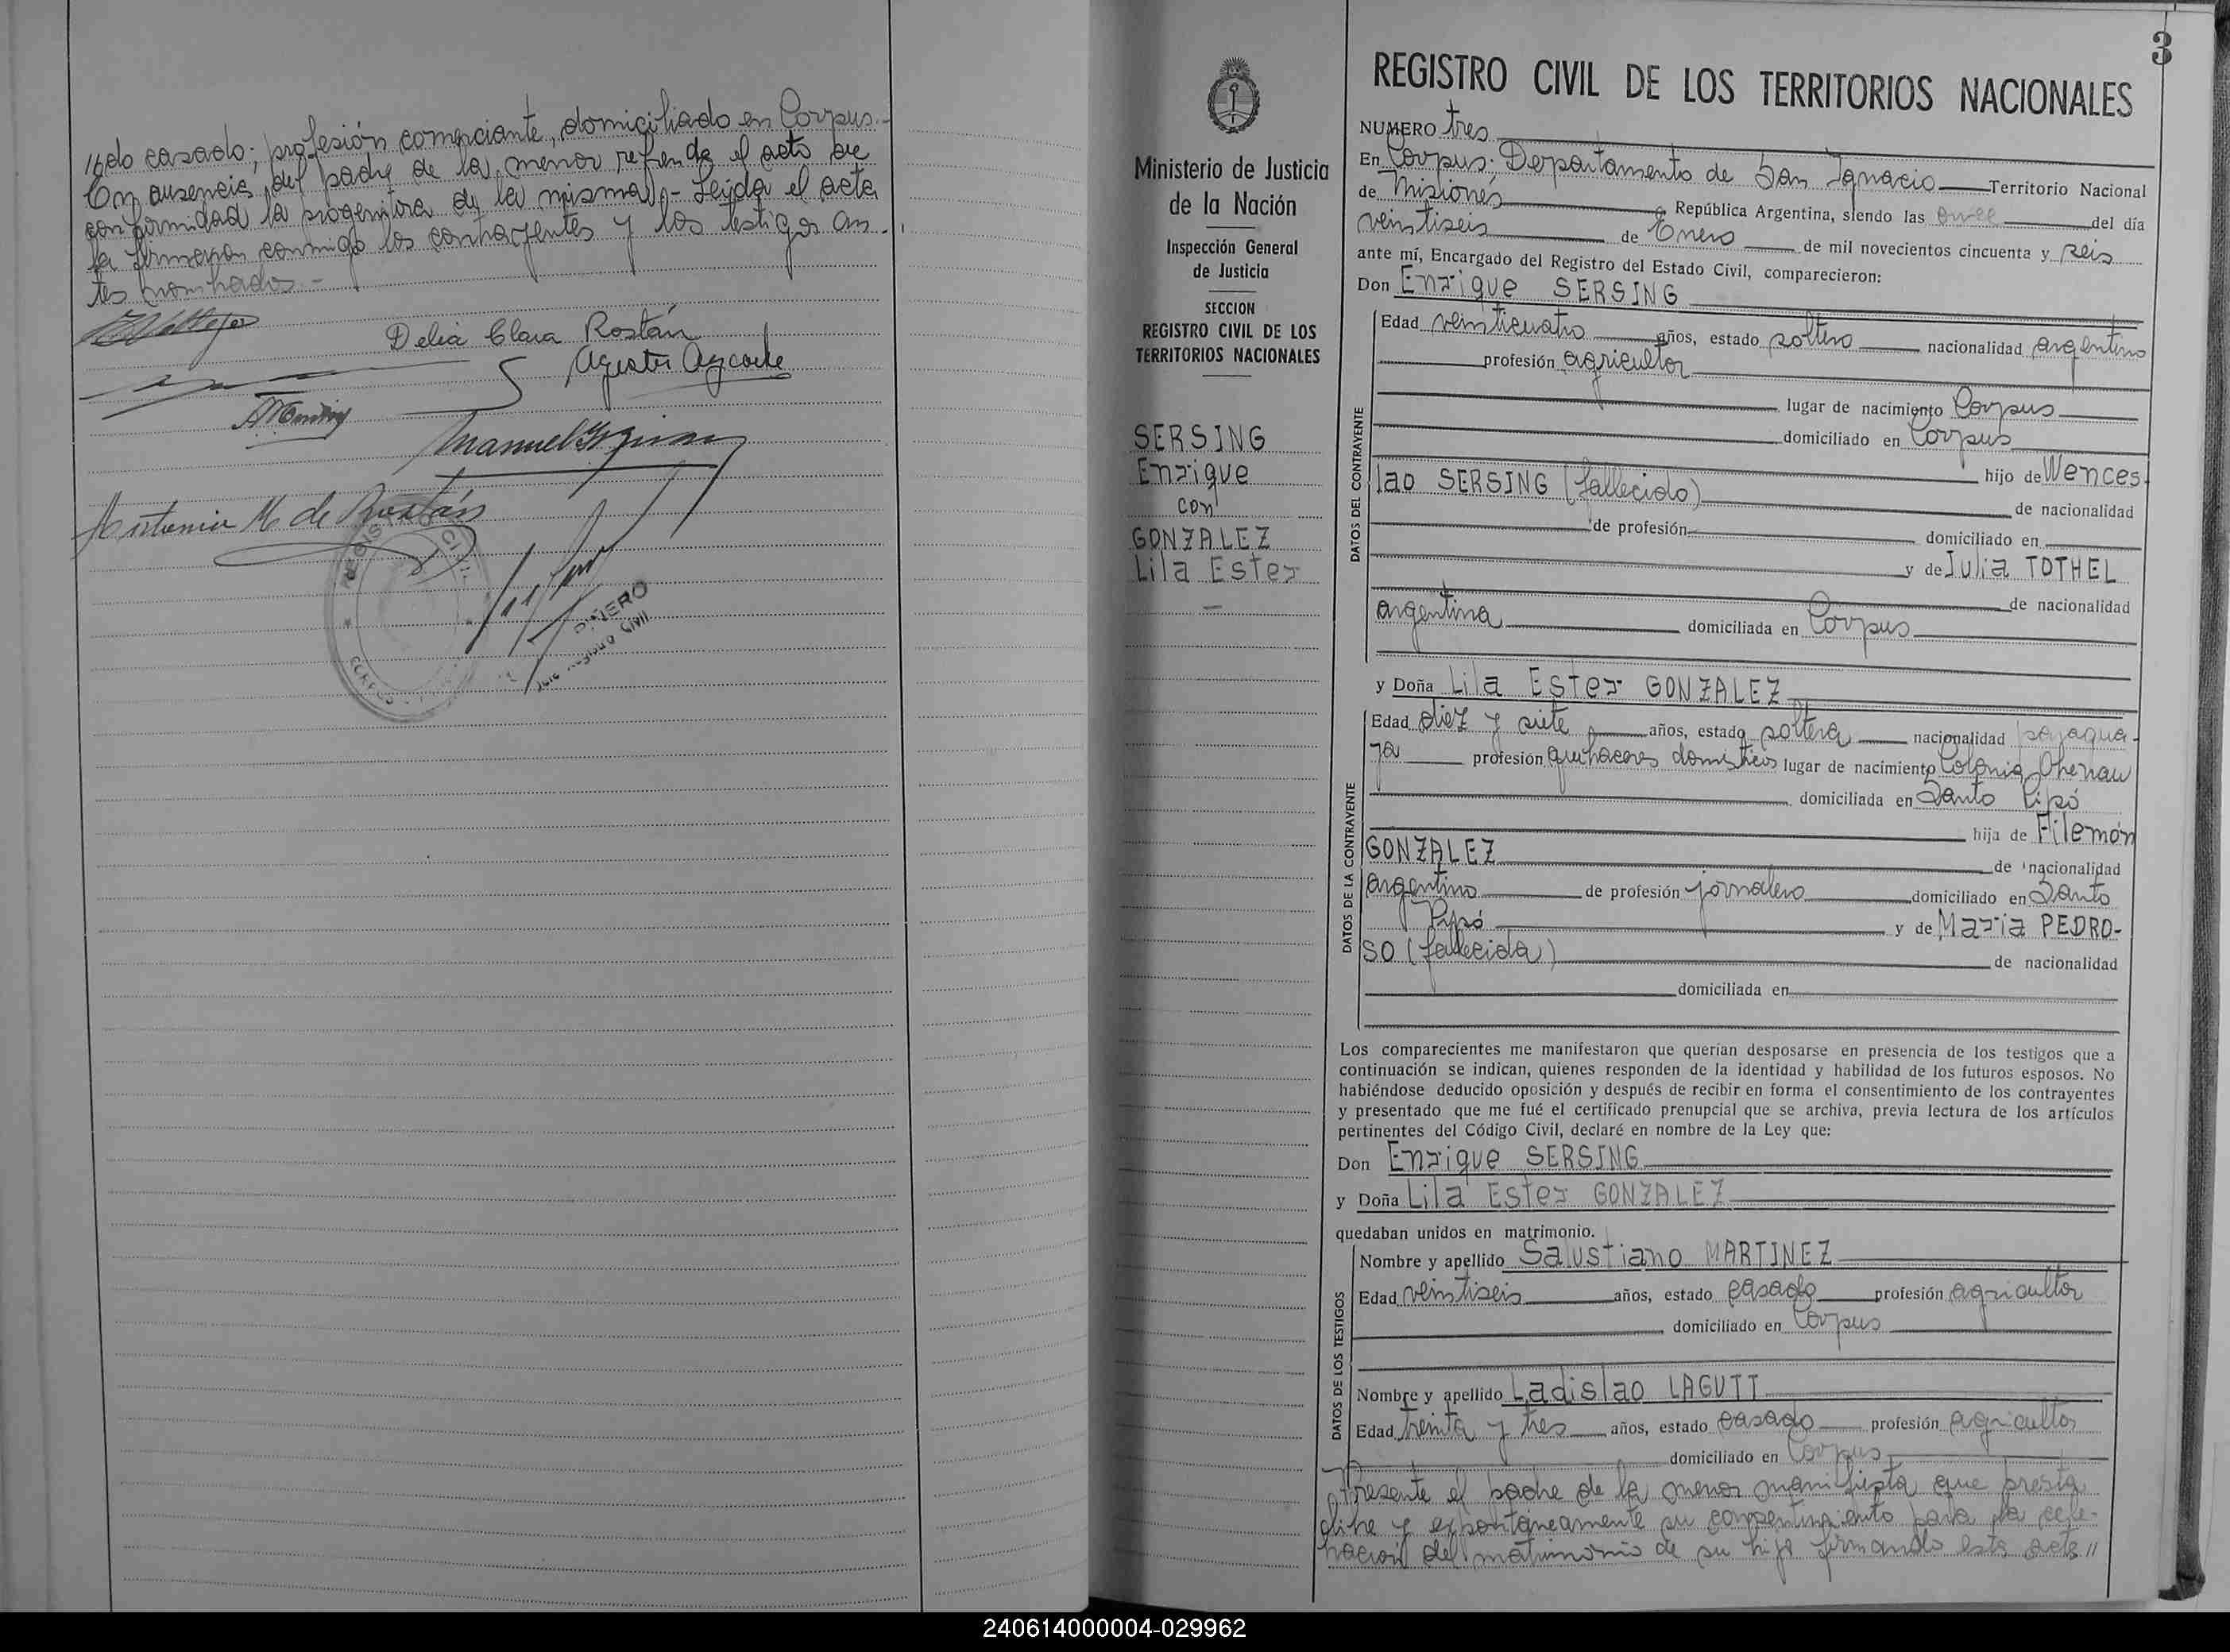 //do casado; profesión comerciante, domiciliado en Corpus.-
En ausencia del padre de la menor, refrenda el acto de
conformidad la progenitora de la misma.- Leída el acta
la firmaron conmigo los contrayentes y los testigos an-
tes nombrados.-
Delia Clara Rostán
Manuel
Antonia M. de Rostán
REGISTRO CIVIL
PIÑERO
Jefe Registro Civil
3
Ministerio de Justicia
de la Nación
Inspección General
de Justicia
SECCION
REGISTRO CIVIL DE LOS
TERRITORIOS NACIONALES
SERSING
Enrique
con
GONZALEZ
Lila Ester
REGISTRO CIVIL DE LOS TERRITORIOS NACIONALES
NUMERO tres
En Corpus; Departamento de San Ignacio Territorio Nacional
de Misiones República Argentina, siendo las once del día
veintiseis de Enero de mil novecientos cincuenta y seis
ante mí, Encargado del Registro del Estado Civil, comparecieron:
Don Enrique SERSING
DATOS DEL CONTRAYENTE
Edad veinticuatro años, estado soltero nacionalidad argentino
profesión agricultor
lugar de nacimiento Corpus
domiciliado en Corpus
hijo de Wences
lao SERSING (fallecido)
de nacionalidad
de profesión domiciliado en
y de Julia TOTHEL
de nacionalidad
argentina domiciliada en Corpus
y Doña Lila Ester GONZALEZ
DATOS DE LA CONTRAYENTE
Edad diez y siete años, estado soltera nacionalidad paragua-
ya profesión quehaceres domésticos lugar de nacimiento Colonia Ohenau
domiciliada en Santo Pipó
hija de Filemón
GONZALEZ de nacionalidad
argentino de profesión jornalero domiciliado en Santo
Pipó y de María PEDRO-
SO (fallecida) de nacionalidad
domiciliada en
Los comparecientes me manifestaron que querían desposarse en presencia de los testigos que a
continuación se indican, quienes responden de la identidad y habilidad de los futuros esposos. No
habiéndose deducido oposición y después de recibir en forma el consentimiento de los contrayentes
y presentado que me fué el certificado prenupcial que se archiva, previa lectura de los artículos
pertinentes del Código Civil, declaré en nombre de la Ley que:
Don Enrique SERSING
y Doña Lila Ester GONZALEZ
quedaban unidos en matrimonio.
DATOS DE LOS TESTIGOS
Nombre y apellido Salustiano MARTINEZ
Edad veintiseis años, estado casado profesión agricultor
domiciliado en Corpus
Nombre y apellido Ladislao LAGUTT
Edad treinta y tres años, estado casado profesión agricultor
domiciliado en Corpus
Presente el padre de la menor manifiesta que presta
libre y espontáneamente su consentimiento para la cele-
bración del matrimonio de su hija firmando esta acta//
240614000004-029962